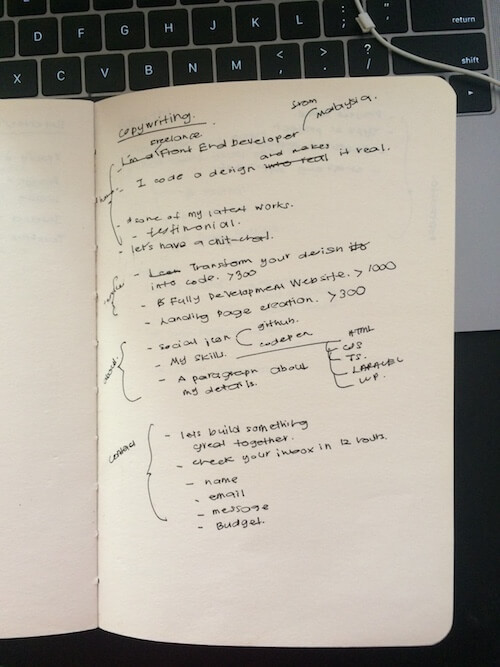 D F G H J K L : ; " ' return
X C V B N M < , > . ? / shift
copywriting.
from
Malaysia.
Freelance
- I'm a Front End Developer
and makes
- I code a design into real it real.
- some of my latest works.
- testimonial.
- let's have a chit-chat.
- Transform your design
into code. >300
- Fully Development Website. > 1000
- Landing Page creation. >300
- social icon
github.
codepen
- My skills.
HTML
CSS
JS.
LARAVEL
WP.
about.
- A paragraph about
my details.
contact
- lets build something
great together.
- check your inbox in 12 hours.
- name
- email
- message
- Budget.